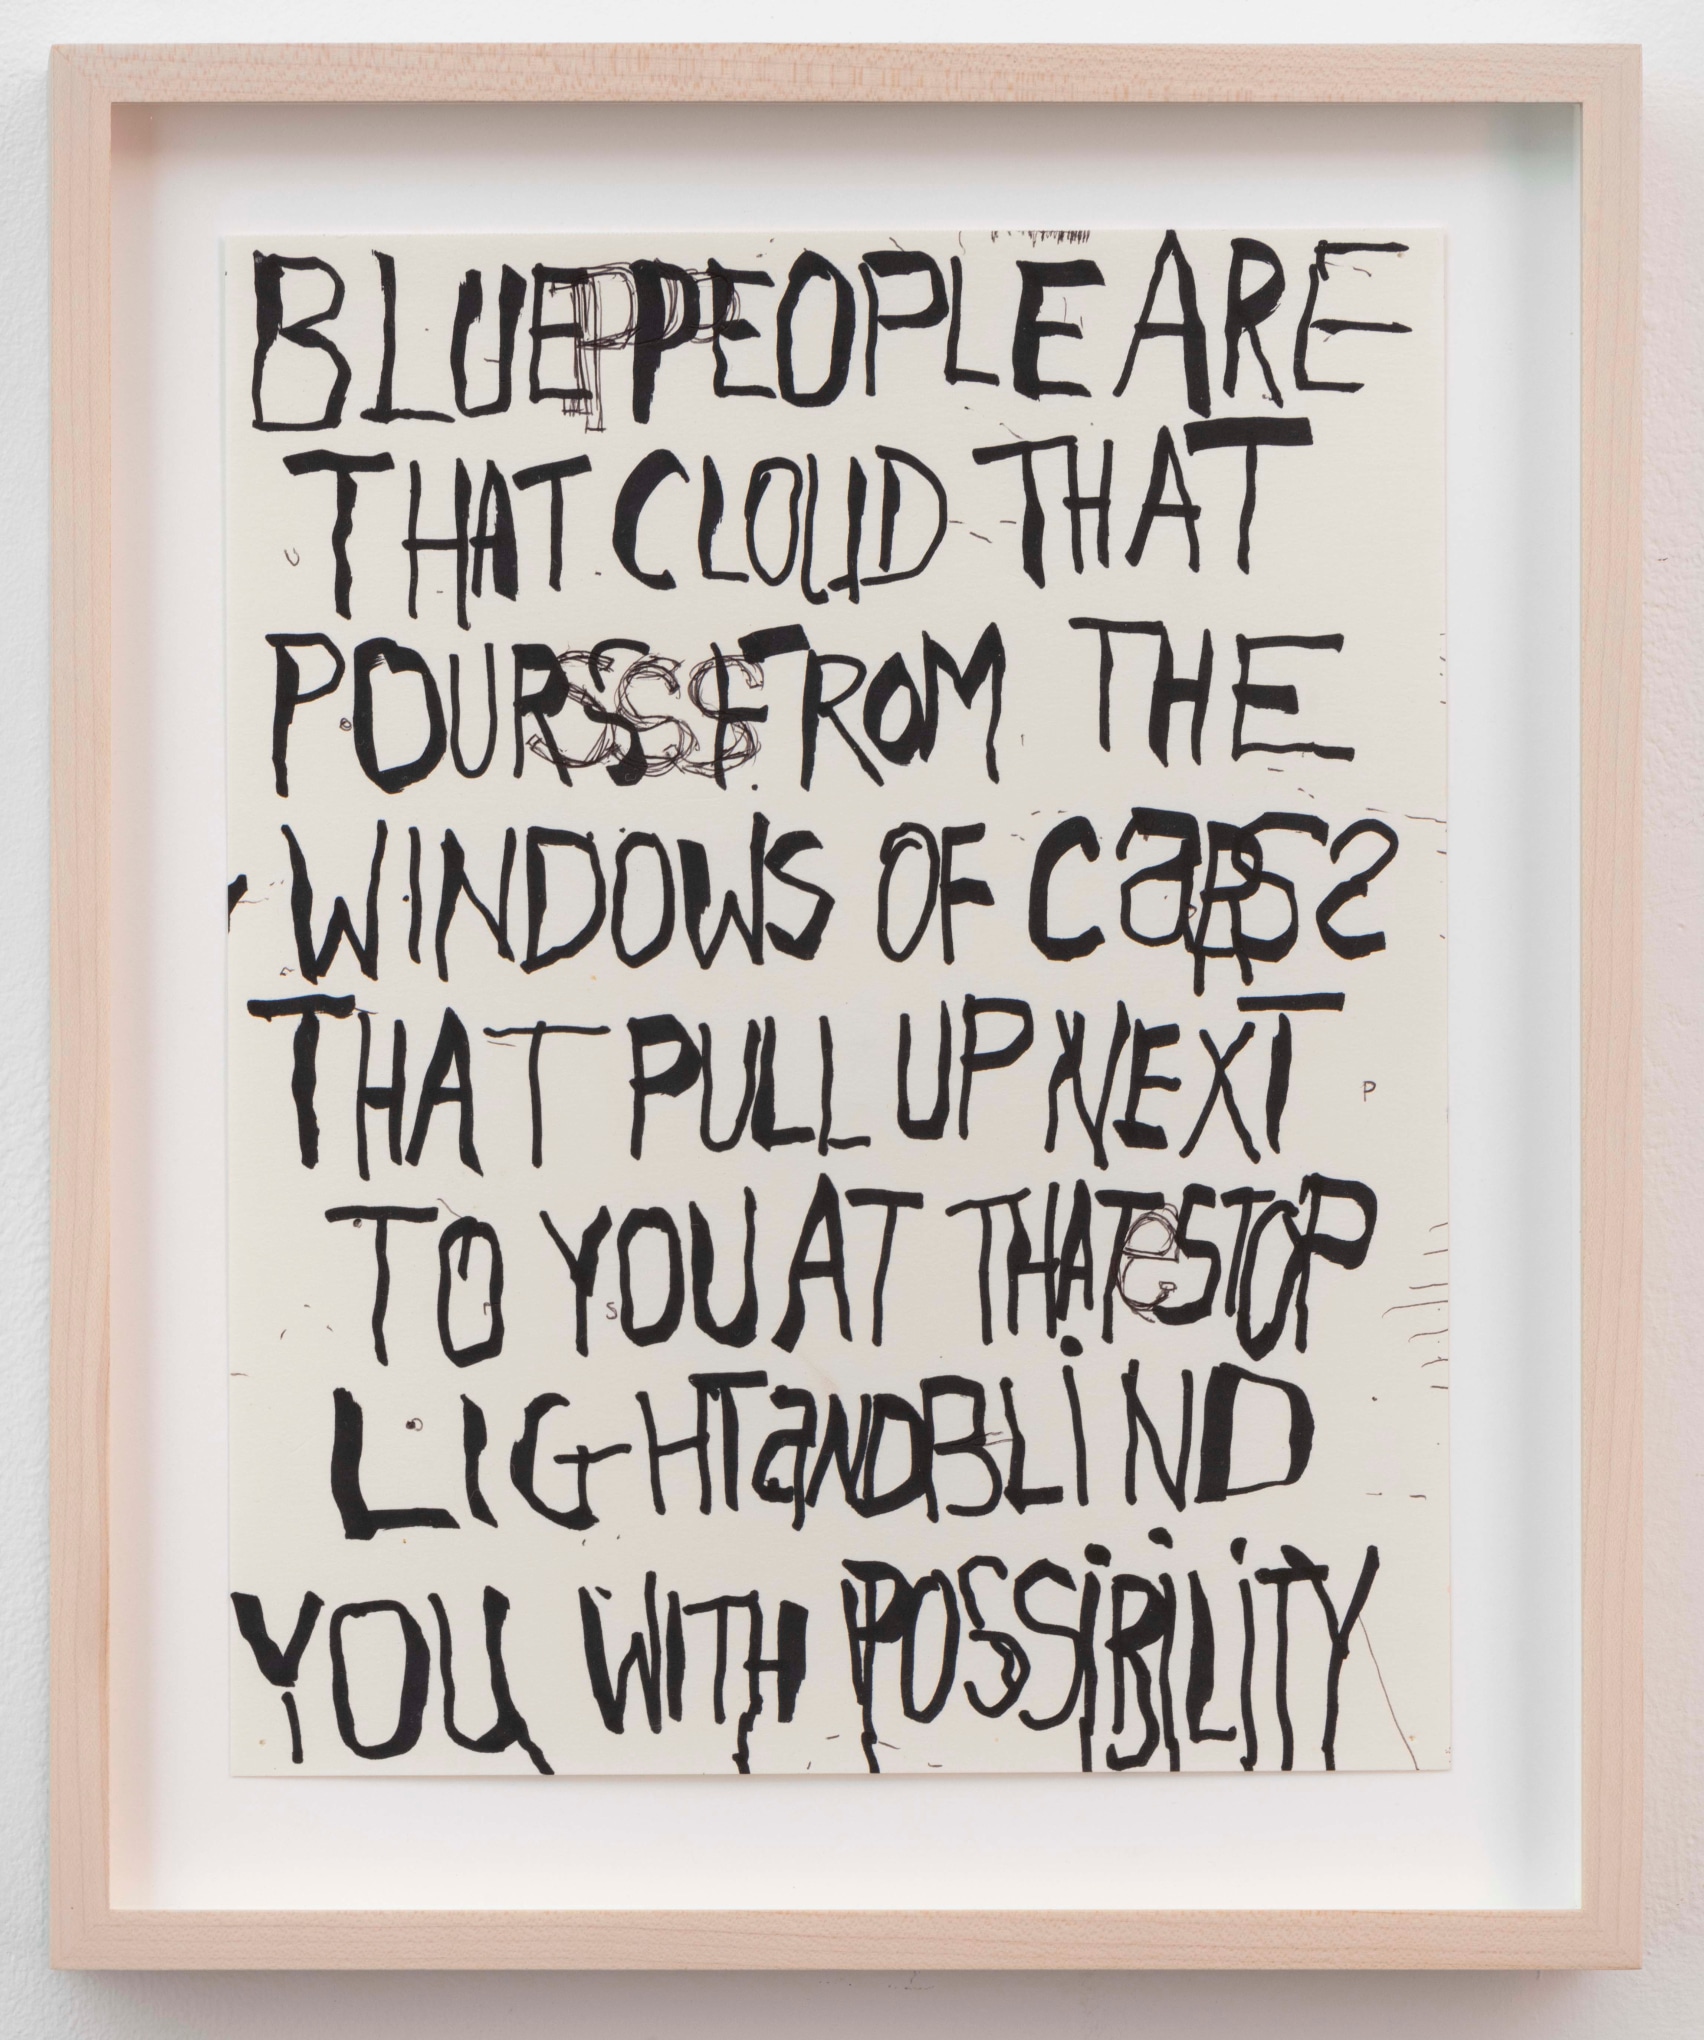 BLUE PEOPLE ARE
THAT CLOUD THAT
POURS FROM THE
WINDOWS OF CaRS
THAT PULL UP NEXT
TO YOU AT THAT STOP
LIGHT aND BLiND
YOU WITH POSSiBiLiTY